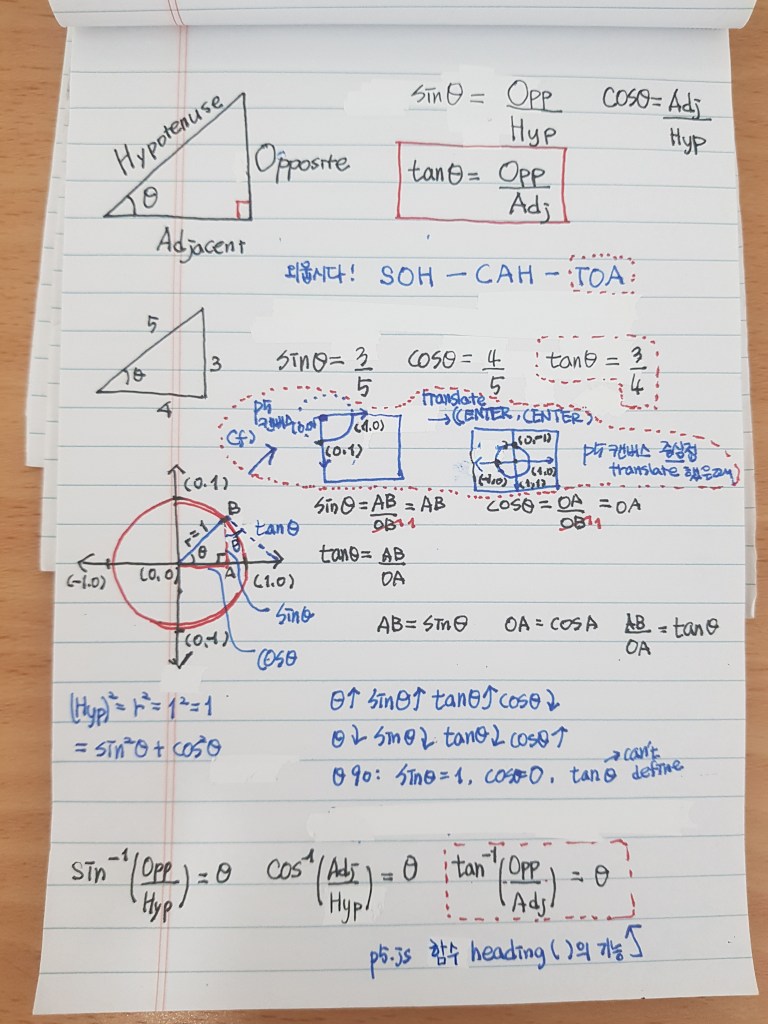 sinθ = Opp/Hyp cosθ = Adj/Hyp
Hypotenuse
Opposite
θ
Adjacent
tanθ = Opp/Adj
외웁시다! SOH - CAH - TOA
5
3
θ
4
sinθ = 3/5 cosθ = 4/5 tanθ = 3/4
cf)
p5 캔버스
(0,0)
(1.0)
(0.1)
translate
→ (CENTER, CENTER)
(0,-1)
(-1,0)
(1,0)
p5 캔버스 중심점
translate 했을때
(0.1)
B
r=1
θ
tanθ
(-1.0)
(0,0)
A
(1.0)
sinθ
(0,-1)
cosθ
sinθ = AB/OB = AB cosθ = OA/OB = OA
tanθ = AB/OA
AB = sinθ OA = cosA AB/OA = tanθ
(Hyp)² = r² = 1² = 1
= sin²θ + cos²θ
θ↑ sinθ↑ tanθ↑ cosθ↓
θ↓ sinθ↓ tanθ↓ cosθ↑
θ 90: sinθ = 1, cosθ=0, tanθ → can't define
sin⁻¹(Opp/Hyp) = θ cos⁻¹(Adj/Hyp) = θ tan⁻¹(Opp/Adj) = θ
p5.js 함수 heading()의 기능